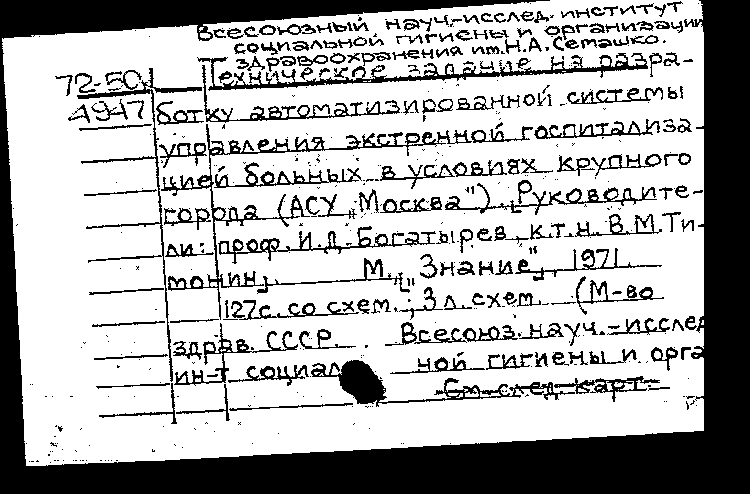 Всесоюзный науч.-исслед. институт
социальной гигиены и организации
здравоохранения им. Н.А. Семашко.
72-50
Техническое задание на разра-
4947 ботку автоматизированной системы
управления экстренной госпитализа-
цией больных в условиях крупного
города (АСУ „Москва"). Руководите-
ли: проф. И.Д. Богатырев, к.т.н. В.М. Ти-
монин. М., „Знание", 1971.
127с. со схем.; 3 л. схем. (М-во
здрав. СССР. Всесоюз. науч.-исслед
ин-т социал ной гигиены и орга
См. след. карт